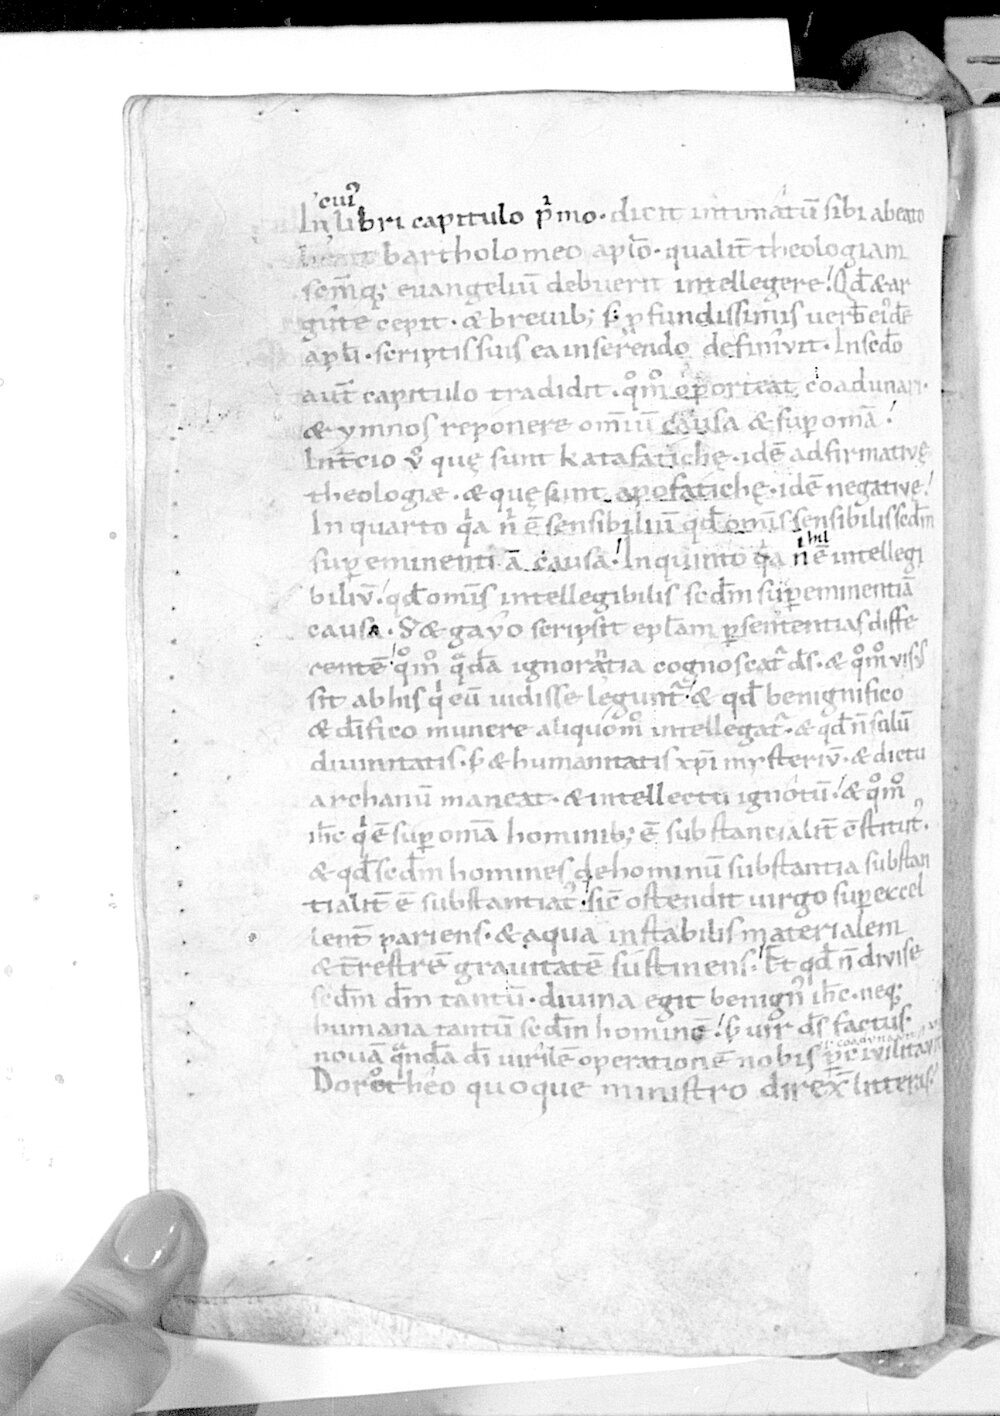 cui᷒
In libri capitulo p̄mo · dicit intimatū sibi abeato
bartholomeo apl̄o · qualit̄ theologiam
scm̄q; euangeliū debuerit intellegere! Qd̄ & ar
gute cepit · & breuib; s; ꝓfundissimis uerb̄ eide
apłi · scriptis suis ea inserendo definiuit · In scd̄o
aut̄ capitulo tradidit · qm̊ oporteat coadunari ·
& ymnos reponere omīu causa & suꝑ omā!
In t̄cio v̊ quę sunt katafatichę · idē adfirmativę
theologiæ · & quę sunt apofatichę · idē negativę!
In quarto qa n̄ ē sensibiliū qd̄ omīs sensibilis scd̄m
suꝑeminentiā causa! In quinto qa nihil ē intellegi
biliū! qd̄ omīs intellegibilis scd̄m suꝑeminentiā
causa · S; & gaỿo scripsit epłam ꝑ sententias diffe
centē! qm̊ qdā ignorantia cognoscat᷑ ds̄ · & qm̊ visus
sit ab his qi eū uidisse legunt᷑! & qd̄ benignifico
& dīfico munere aliquom̊ intellegat᷑ · & qd̄ n̄ solū
diuinitatis · s; & humanitatis xp̄i mysteriū · & dictu
archanū maneat · & intellectu ignotū! & qm̊
ih̄c qi ē suꝑ omā hominib; ē substancialit̄ c̄stitut᷒ ·
& qd̄ scd̄m homines de hominū substantia substan
tialit̄ ē substantiat᷒ · sic̄ ostendit uirgo suꝑexcel
lent̄ pariens · & aqua instabilis materialem
& t̄restrē grauitatē sustinens! Et qd̄ n̄ divise
scd̄m dm̄ tantū · diuina egit benign᷒ ih̄c · neq;
humana tantū scd̄m hominē! s; uir ds̄ factus ·
novā qandā dī uirilē operationē nobis
Dorotheo quoque ministro direx̄ litteras!